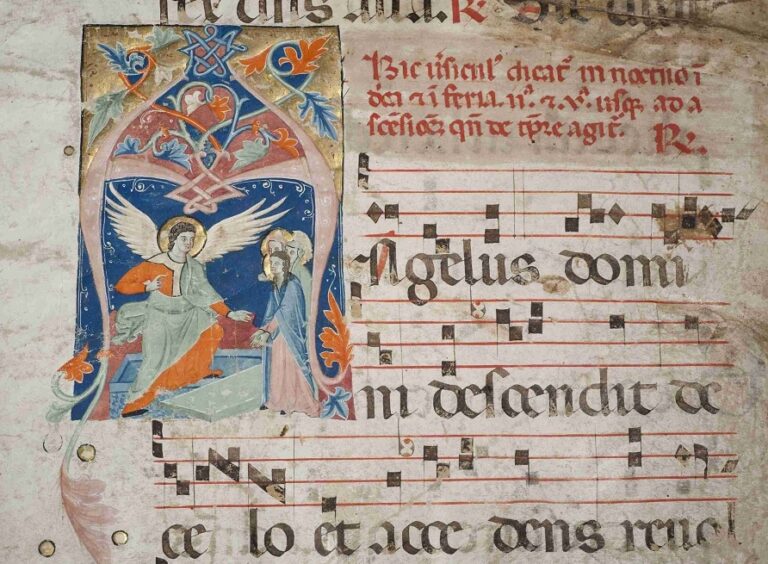 R.
Hic v̄sicul' dicat᷑ in noct̄no ī
feria. ii. ⁊ .v. usq ad a
scēsiōez qn̄ de tp̄re agit᷑. R.
ANgelus domi
ni descendit de
ce lo et acce dens reuol